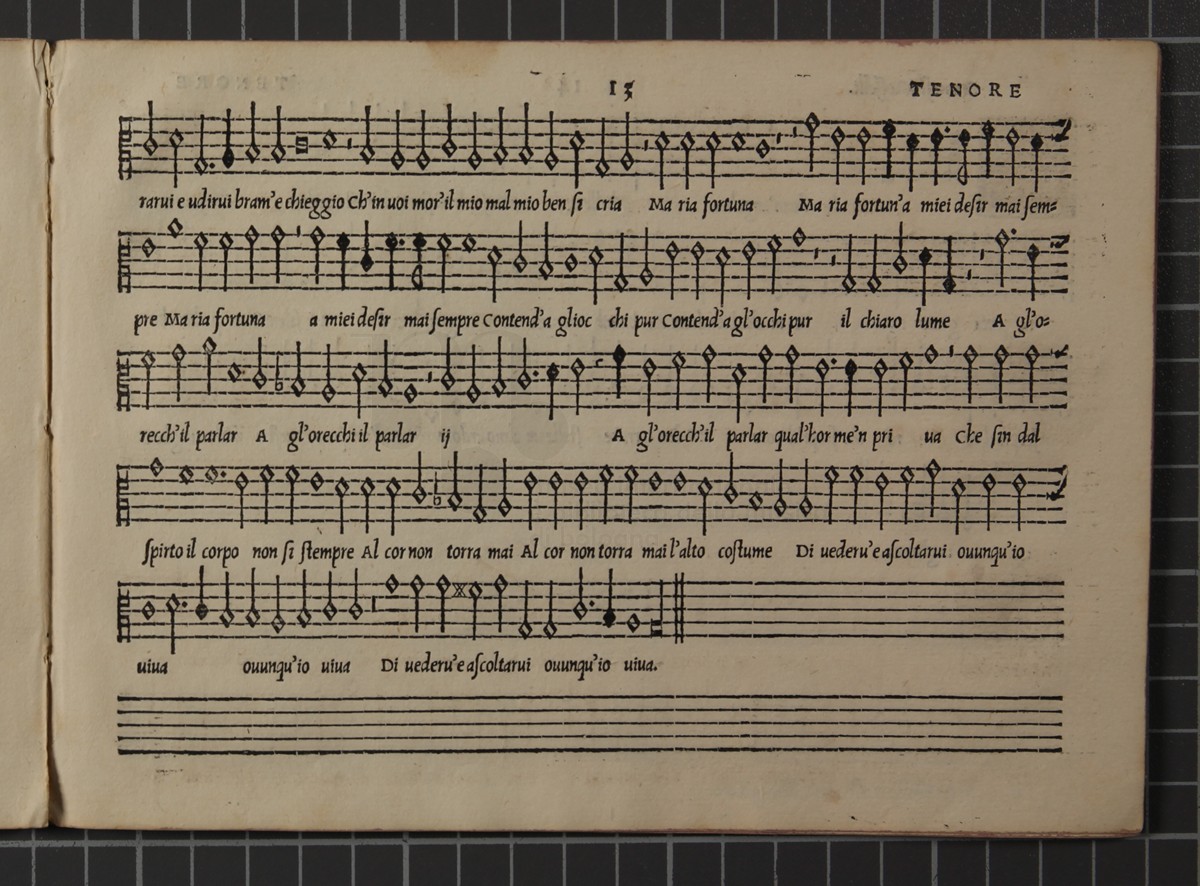 13 TENORE
rarui e udirui bram'e chieggio Ch'in uoi mor'il mio mal mio ben si cria Ma ria fortuna Ma ria fortun'a miei desir mai sem=
pre Ma ria fortuna a miei desir mai sempre Contend'a glioc chi pur Contend'a gl'occhi pur il chiaro lume A gl'o=
recch'il parlar A gl'orecchi il parlar ij A gl'orecch'il parlar qual'hor me'n pri ua Che sin dal
spirto il corpo non si stempre Al cor non torra mai Al cor non torra mai l'alto costume Di uederu'e ascoltarui ouunqu'io
uiua ouunqu'io uiua Di uederu'e ascoltarui ouunqu'io uiua.